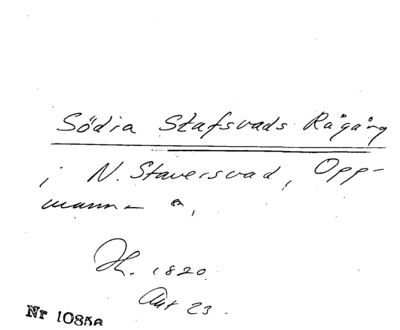 Södra Stafsvads Rågång
i N. Staversvad, Opp-
manna
H. 1820.
Akt 23.
Nr 10856